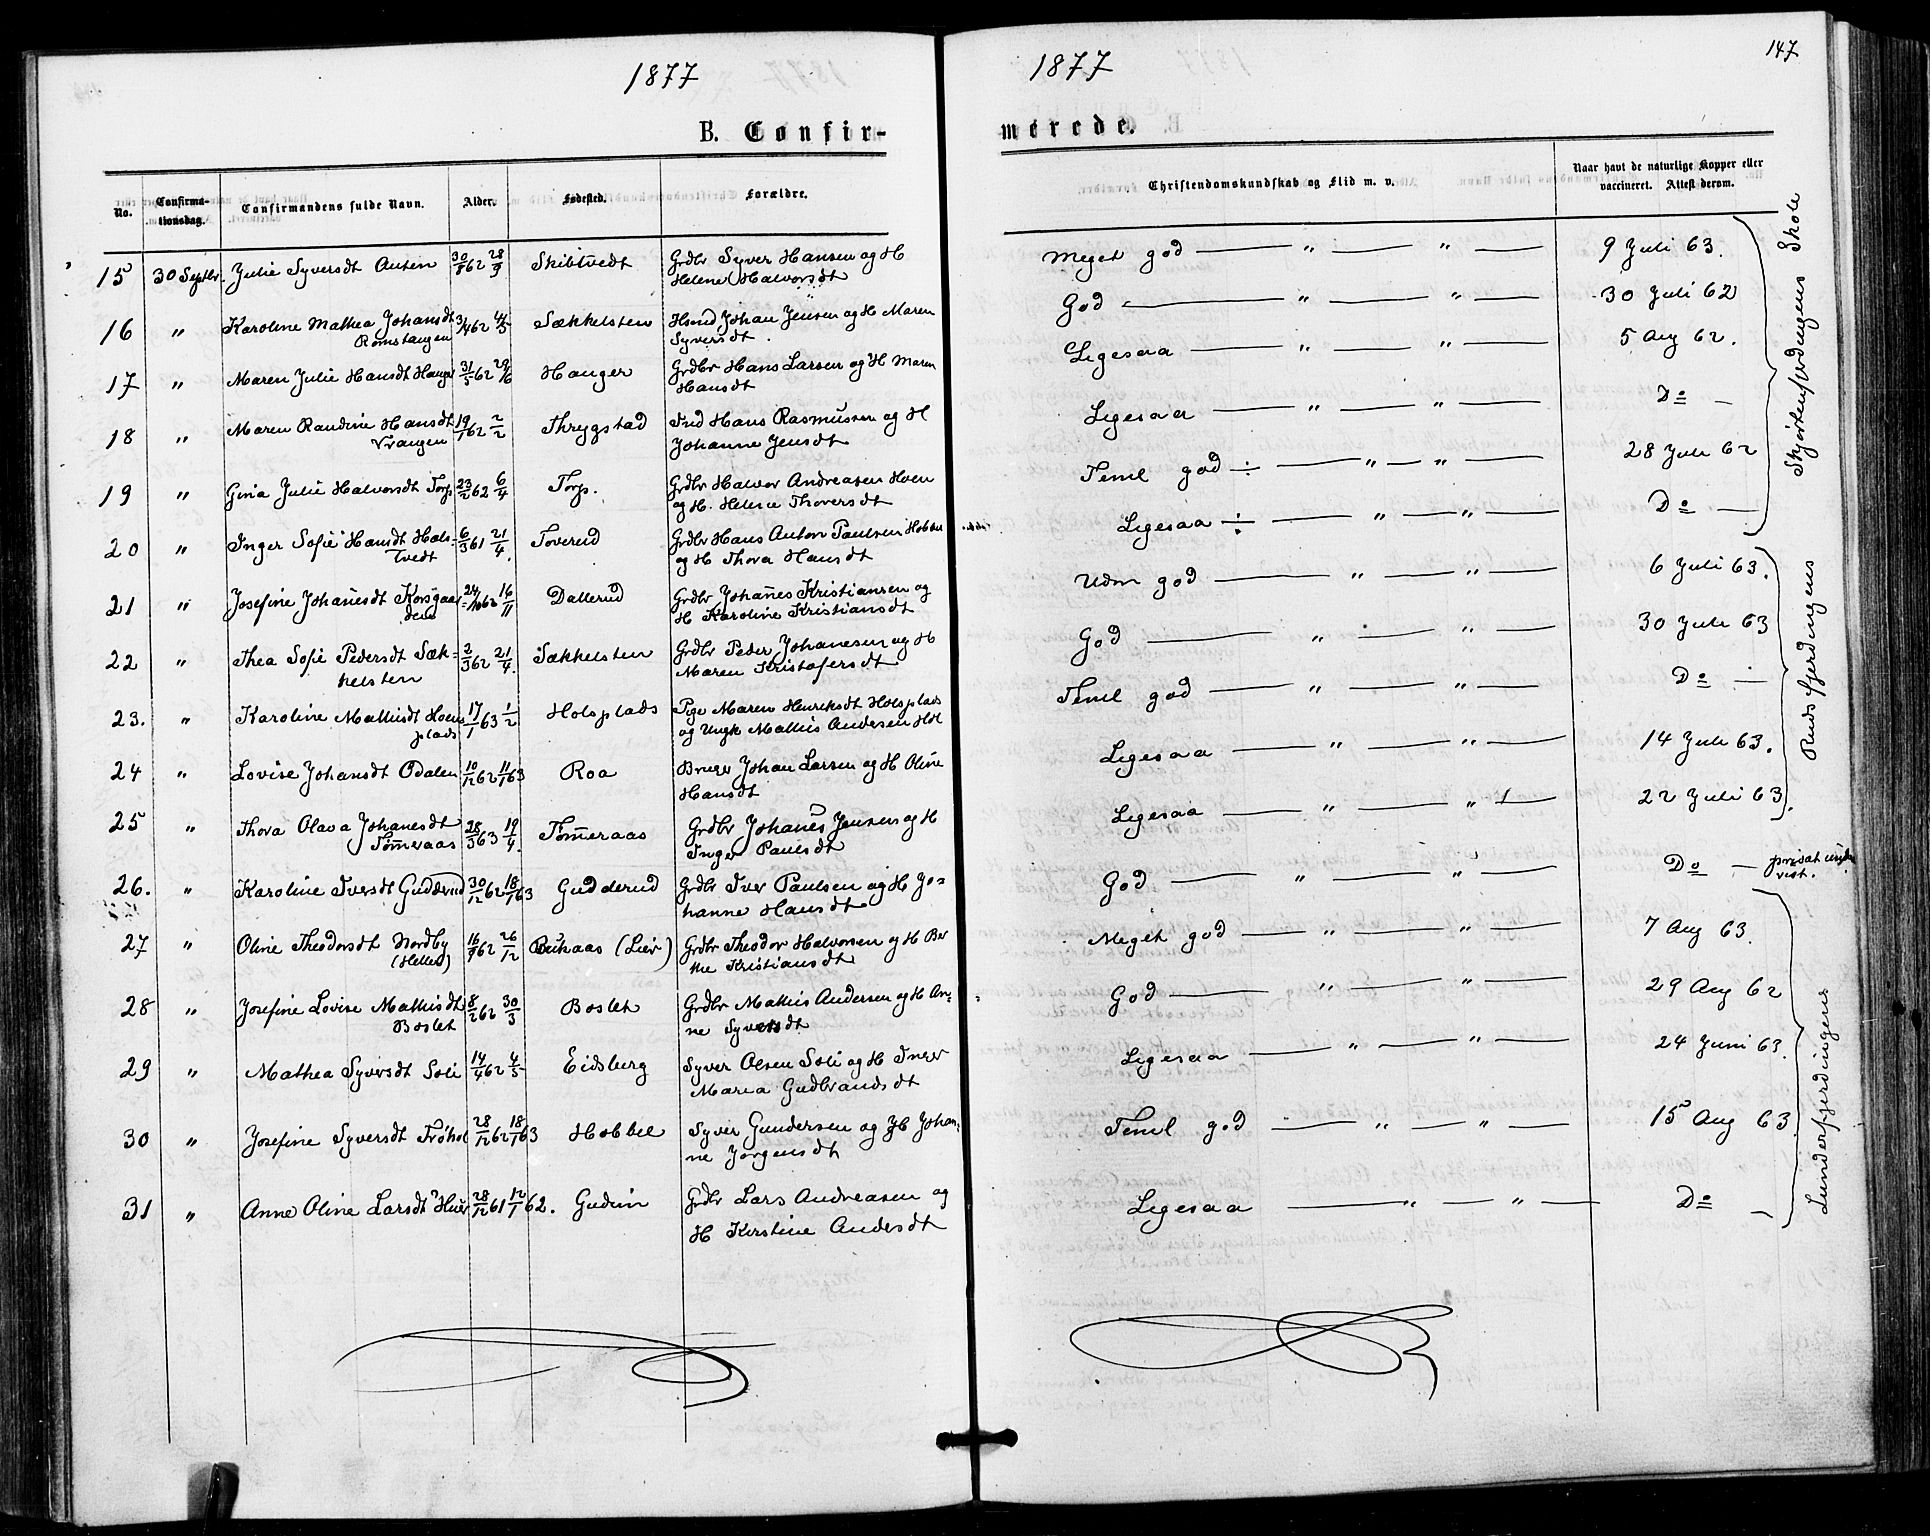 1877
B. Confir-
No.
Confirma-
tionsdag.
Confirmandens fulde Navn.
Alder.
Fødested.
Forældre.
15 30 Septbr Julie Syversdt Auten 30/8 62 28/9 Skibtvedt Grdbr Syver Hansen og H
Helene Halvorsdt
16 " Karoline Mathea Johansdt 3/4 62 4/5 Sækkelsten Hsmd Johan Jensen og H Maren
Romstangen Syversdt.
17 " Maren Julie Hansdt Hauger 31/5 62 29/6 Hauger Grdbr Hans Larsen og H Maren
Hansdt
18 " Maren Randine Hansdt 19/1 62 2/2 Thrygstad Ind Hans Rasmussen og H
Vrangen Johanne Jensdt
19 " Gina Julie Halvorsdt Torp 23/2 62 6/4 Torp. Grdbr Halvor Andreasen Hoen
og H. Helene Thoversdt
20 " Inger Sofie Hansdt Hols- 6/3 61 21/4. Toverud Grdbr Hans Anton Paulsen Hobbel
tvedt og H Thora Hansdt
21 " Josefine Johanesdt Korsgaar- 24/10 62 16/11 Dallerud Grdbr Johanes Kristiansen og
den H Karoline Kristiansdt
22 " Thea Sofie Pedersdt Sæk- 2/3 62 21/4. Sækkelsten Grdbr Peder Johanesen og H
kelsten Maren Kristofersdt
23. " Karoline Mathisdt Hoens 17/1 63 1/2 Holsplads Pige Maren Henriksdt Holsplads
plads og Ungk Mathis Andersen Hol
24 " Lovise Johansdt Odalen 10/12 62 11/1 63 Roa Bruger Johan Larsen og H Oline
Hansdt
25 " Thora Olava Johanesdt 28/3 63 19/4. Tømeraas Grdbr Johanes Jensen og H
Tømeraas Inger Paulsdt
26. " Karoline Iversdt Gudderud 30/12 62 18/1 63 Gudderud Grdbr Iver Paulsen og H Jo-
hanne Hansdt
27 " Oline Theodorsdt Nordby 16/9 62 26/12 Bukaas (Lier) Grdbr Theodor Halvorsen og H Ber
(Heller) the Kristiansdt
28 " Josefine Lovise Mathisdt 8/2 62 30/3 Boslet Grdbr Mathis Andersen og H An-
Boslet ne Syversdt
29 " Mathea Syversdt Soli 14/4 62 4/5 Eidsberg Syver Olsen Soli og H Inger
Maria Gudbrandsdt
30 " Josefine Syversdt Frøhol 28/12 62 18/1 63 Hobbel Syver Gundersen og H Johan-
ne Jørgensdt
31 " Anne Oline Larsdt Huer 28/12 61 12/1 62. Gudim Grdbr Lars Andreasen og
H Kirstine Andersdt
1877
147
merede.
Christendomskundskab og Flid m. v.
Naar havt de naturlige Kopper eller
vaccineret. Attest derom.
Meget god — " — " — 9 Juli 63.
God — " — " — 30 Juli 62
Ligesaa — " — " — 5 Aug 62.
Ligesaa — " — " — Do —
Teml god ÷ — " — " — 28 Juli 62
Ligesaa ÷ — " — " — Do —
Skjørtenfjerdingens Skole
Udm god — " — " — 6 Juli 63.
God — " — " — 30 Juli 63
Teml god — " — " — Do —
Ligesaa — " — " — 14 Juli 63.
Ligesaa — " — " — 22 Juli 63.
Ruds fjerdingens
God — " — " — Do — privat under
vist.
Meget god — " — " — 7 Aug 63.
God — " — " — 29 Aug 62
Ligesaa — " — " — 24 Juni 63.
Teml god — " — " — 15 Aug 63
Ligesaa — " — " — Do —
Lunderfjerdingens